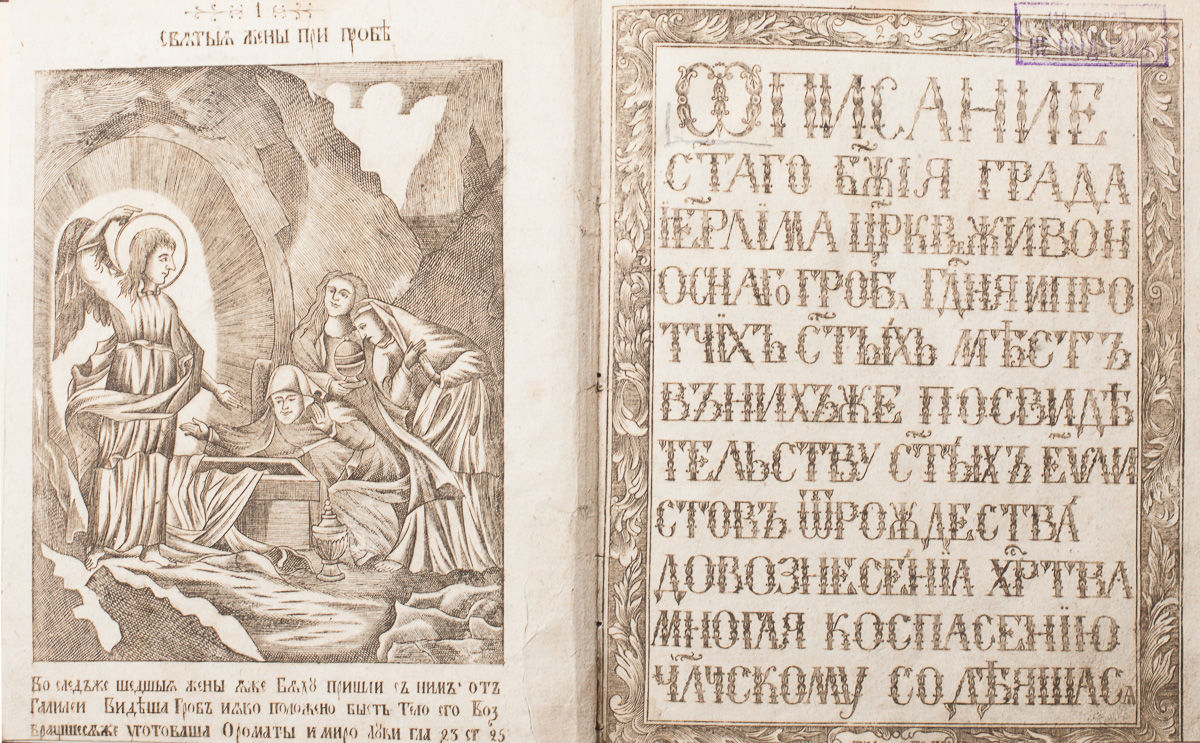 1
СВѦТЫѦ ЖЕНЫ ПРИ ГРОБѢ
Во следѣже шедшыѧ жены ꙗже Бѧхꙋ пришли съ нимъ отъ
Галилеи Видѣша Гробъ иѧко положено бысть Тело его Воз
вращшесѧже уготоваша Ороматы и миро Луки гла 23 ст 25
2 3
ѾПИСАНИЕ
СТ҃АГО БЖ҃ІЯ ГРАДА
ІЕРЛ҃ІМА ЦР҃КВЕ ЖИВОН
ОСНАГО ГРОБА ГДН҃Я И ПРО
ТЧІХЪ СТ҃ЫХЪ МѢСТЪ
ВЪНИХЪЖЕ ПОСВИДѢ
ТЕЛЬСТВУ СТ҃ЫХЪ ЕѴЛИ
СТОВЪ ѾРОЖДЕСТВА
ДОВОЗНЕСЕНІА ХР҃ТВА
МНОГАЯ КОСПАСЕНІЮ
ЧЛ҃ЧСКОМУ СОДѢЯШАСѦ